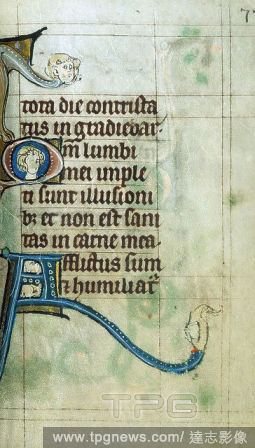 7
tota die contrista
tus in gradiebar.
Qm lumbi
mei imple
ti sunt illusioni
b: et non est sani
tas in carne mea.
Afflictus sum
et humiliat
TPG
www.tpgnews.com / 達志影像